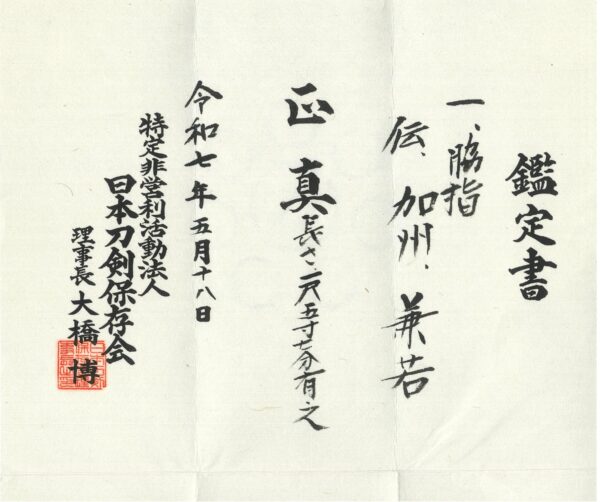 鑑定書
一、脇指
伝、加州、兼若
正真
長さ一尺五寸七分有之
令和七年五月十八日
特定非営利活動法人
日本刀剣保存会
理事長 大橋博